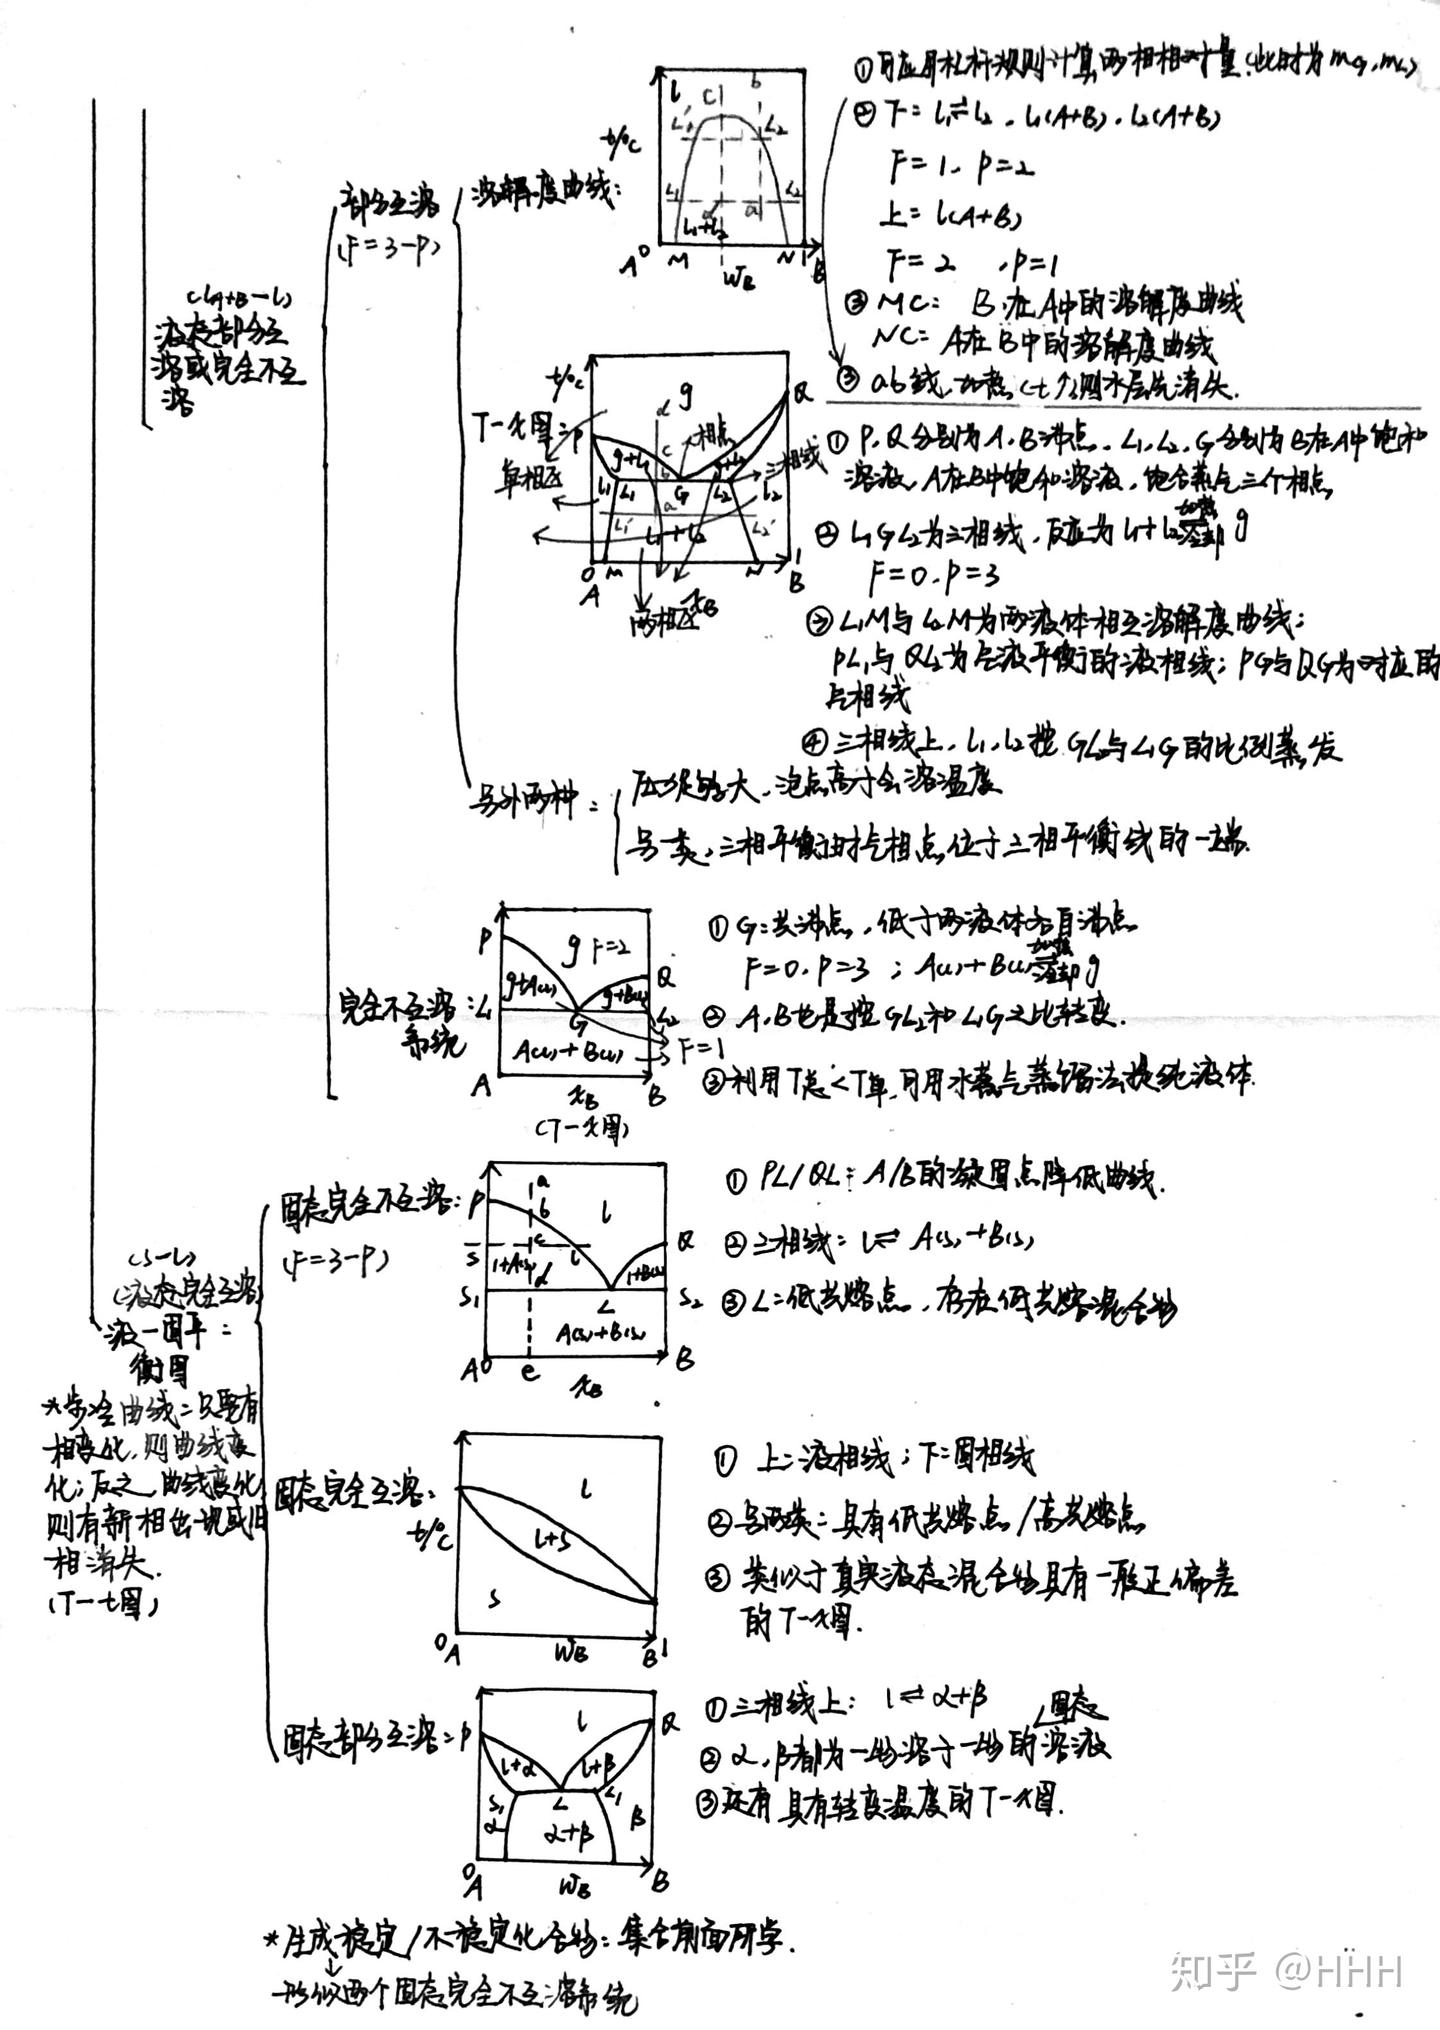 ①可应用杠杆规则计算两相相对量(此时为mG,mL)
②下=l₁⇌l₂,l₁(A+B),l₂(A+B)
F=1,P=2
上=l(A+B)
F=2,P=1
③MC:B在A中的溶解度曲线
NC=A在B中的溶解度曲线
③ab线,加热(t↑)则水层先消失.
部分互溶
(F=3-P)
溶解度曲线:
t/℃
l
C
b
L₁'
L₂
L₁
L₂
a
l₁+l₂
A
0
M
WB
N
1
B
(A+B-l)
液态部分互
溶或完全不互
溶
T-x图:
单相区
t/℃
P
g
Q
d
相点
c
b
g+l₁
g+l₂
三相线
l₁
L₁
G
L₂
l₂
a
L₁'
l₁+l₂
L₂'
0
A
M
N
1
B
xB
两相区
①P,Q分别为A,B沸点,L₁,L₂,G分别为B在A中饱和
溶液,A在B中饱和溶液,饱合蒸气三个相点
②L₁GL₂为三相线,反应为l₁+l₂ 加热 ⇌ 冷却 g
F=0,P=3
③L₁M与L₂M为两液体相互溶解度曲线;
PL₁与QL₂为气液平衡的液相线;PG与QG为对应的
气相线
④三相线上,l₁,l₂按GL₂与L₁G的比例蒸发
另外两种:
压力足够大,泡点高于会溶温度
另一类,三相平衡时气相点位于三相平衡线的一端.
完全不互溶:
系统
P
g F=2
Q
g+A(l)
g+B(l)
L₁
G
L₂
A(l)+B(l)
F=1
A
xB
B
(T-x图)
①G:共沸点,低于两液体各自沸点
F=0,P=3;A(l)+B(l) 加热 ⇌ 冷却 g
②A,B也是按GL₂和L₁G之比转变.
③利用T总<T单,可用水蒸气蒸馏法提纯液体.
(S-l)
(液态完全互溶)
液-固平
衡图
*步冷曲线:只要有
相变化,则曲线变
化;反之,曲线变化
则有新相出现或旧
相消失.
(T-t图)
固态完全不互溶:
(F=3-P)
P
a
b
l
Q
S
c
l
l+A(s)
d
l+B(s)
S₁
L
S₂
A(s)+B(s)
A
0
e
xB
B
①PL/QL:A/B的凝固点降低曲线.
②三相线:l⇌A(s)+B(s)
③L:低共熔点,存在低共熔混合物
固态完全互溶:
t/℃
l
l+S
S
0
A
WB
B
1
①上:液相线;下:固相线
②另两类:具有低共熔点/高共熔点
③类似于真实液态混合物具有一般正偏差
的T-x图.
固态部分互溶:
P
l
Q
l+α
l+β
S₁
L
L₁
α
α+β
β
0
A
WB
B
①三相线上:l⇌α+β
固态
②α,β都为一物溶于一物的溶液
③还有具有转变温度的T-x图.
*生成稳定/不稳定化合物:集合前面所学.
形似两个固态完全不互溶系统
知乎 @HHH